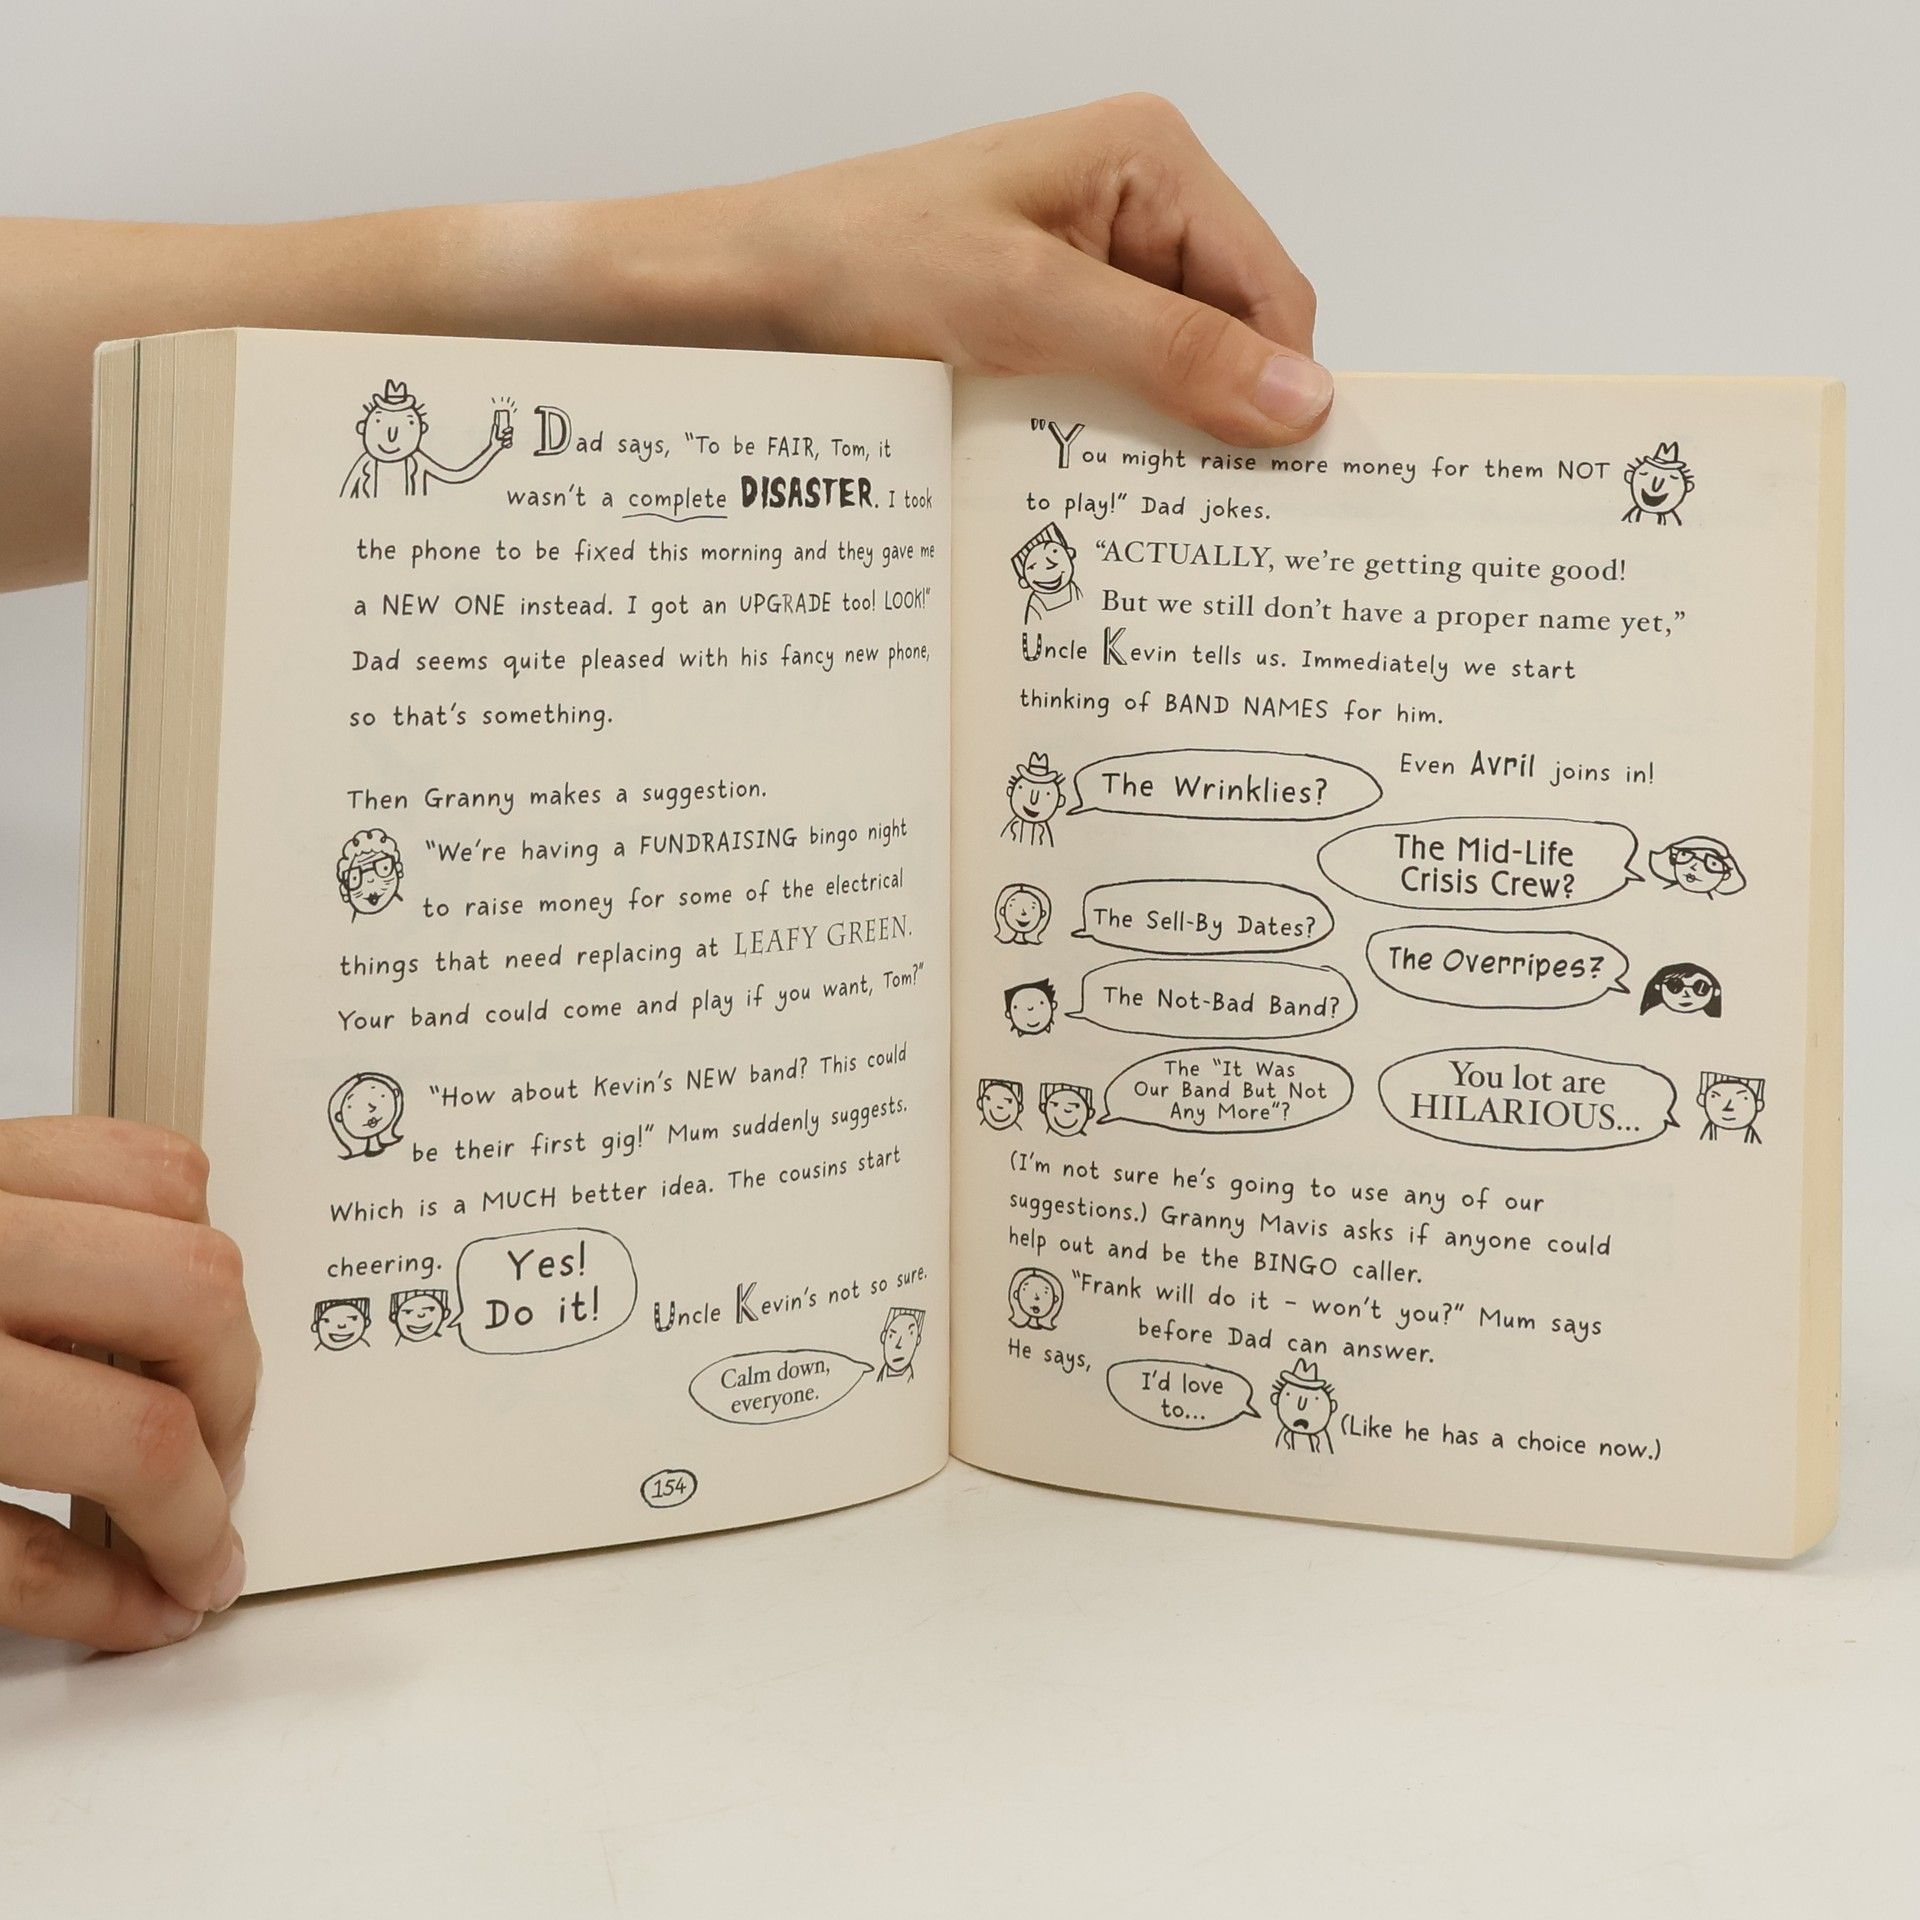 Dad says, "To be FAIR, Tom, it
wasn't a complete DISASTER. I took
the phone to be fixed this morning and they gave me
a NEW ONE instead. I got an UPGRADE too! LOOK!"
Dad seems quite pleased with his fancy new phone,
so that's something.
Then Granny makes a suggestion.
"We're having a FUNDRAISING bingo night
to raise money for some of the electrical
things that need replacing at LEAFY GREEN.
Your band could come and play if you want, Tom?"
"How about Kevin's NEW band? This could
be their first gig!" Mum suddenly suggests.
Which is a MUCH better idea. The cousins start
cheering.
Yes!
Do it!
Uncle Kevin's not so sure.
Calm down,
everyone.
154
"You might raise more money for them NOT
to play!" Dad jokes.
"ACTUALLY, we're getting quite good!
But we still don't have a proper name yet,"
Uncle Kevin tells us. Immediately we start
thinking of BAND NAMES for him.
The Wrinklies?
Even Avril joins in!
The Mid-Life
Crisis Crew?
The Sell-By Dates?
The Overripes?
The Not-Bad Band?
The "It Was
Our Band But Not
Any More"?
You lot are
HILARIOUS...
(I'm not sure he's going to use any of our
suggestions.) Granny Mavis asks if anyone could
help out and be the BINGO caller.
"Frank will do it - won't you?" Mum says
before Dad can answer.
He says,
I'd love
to...
(Like he has a choice now.)